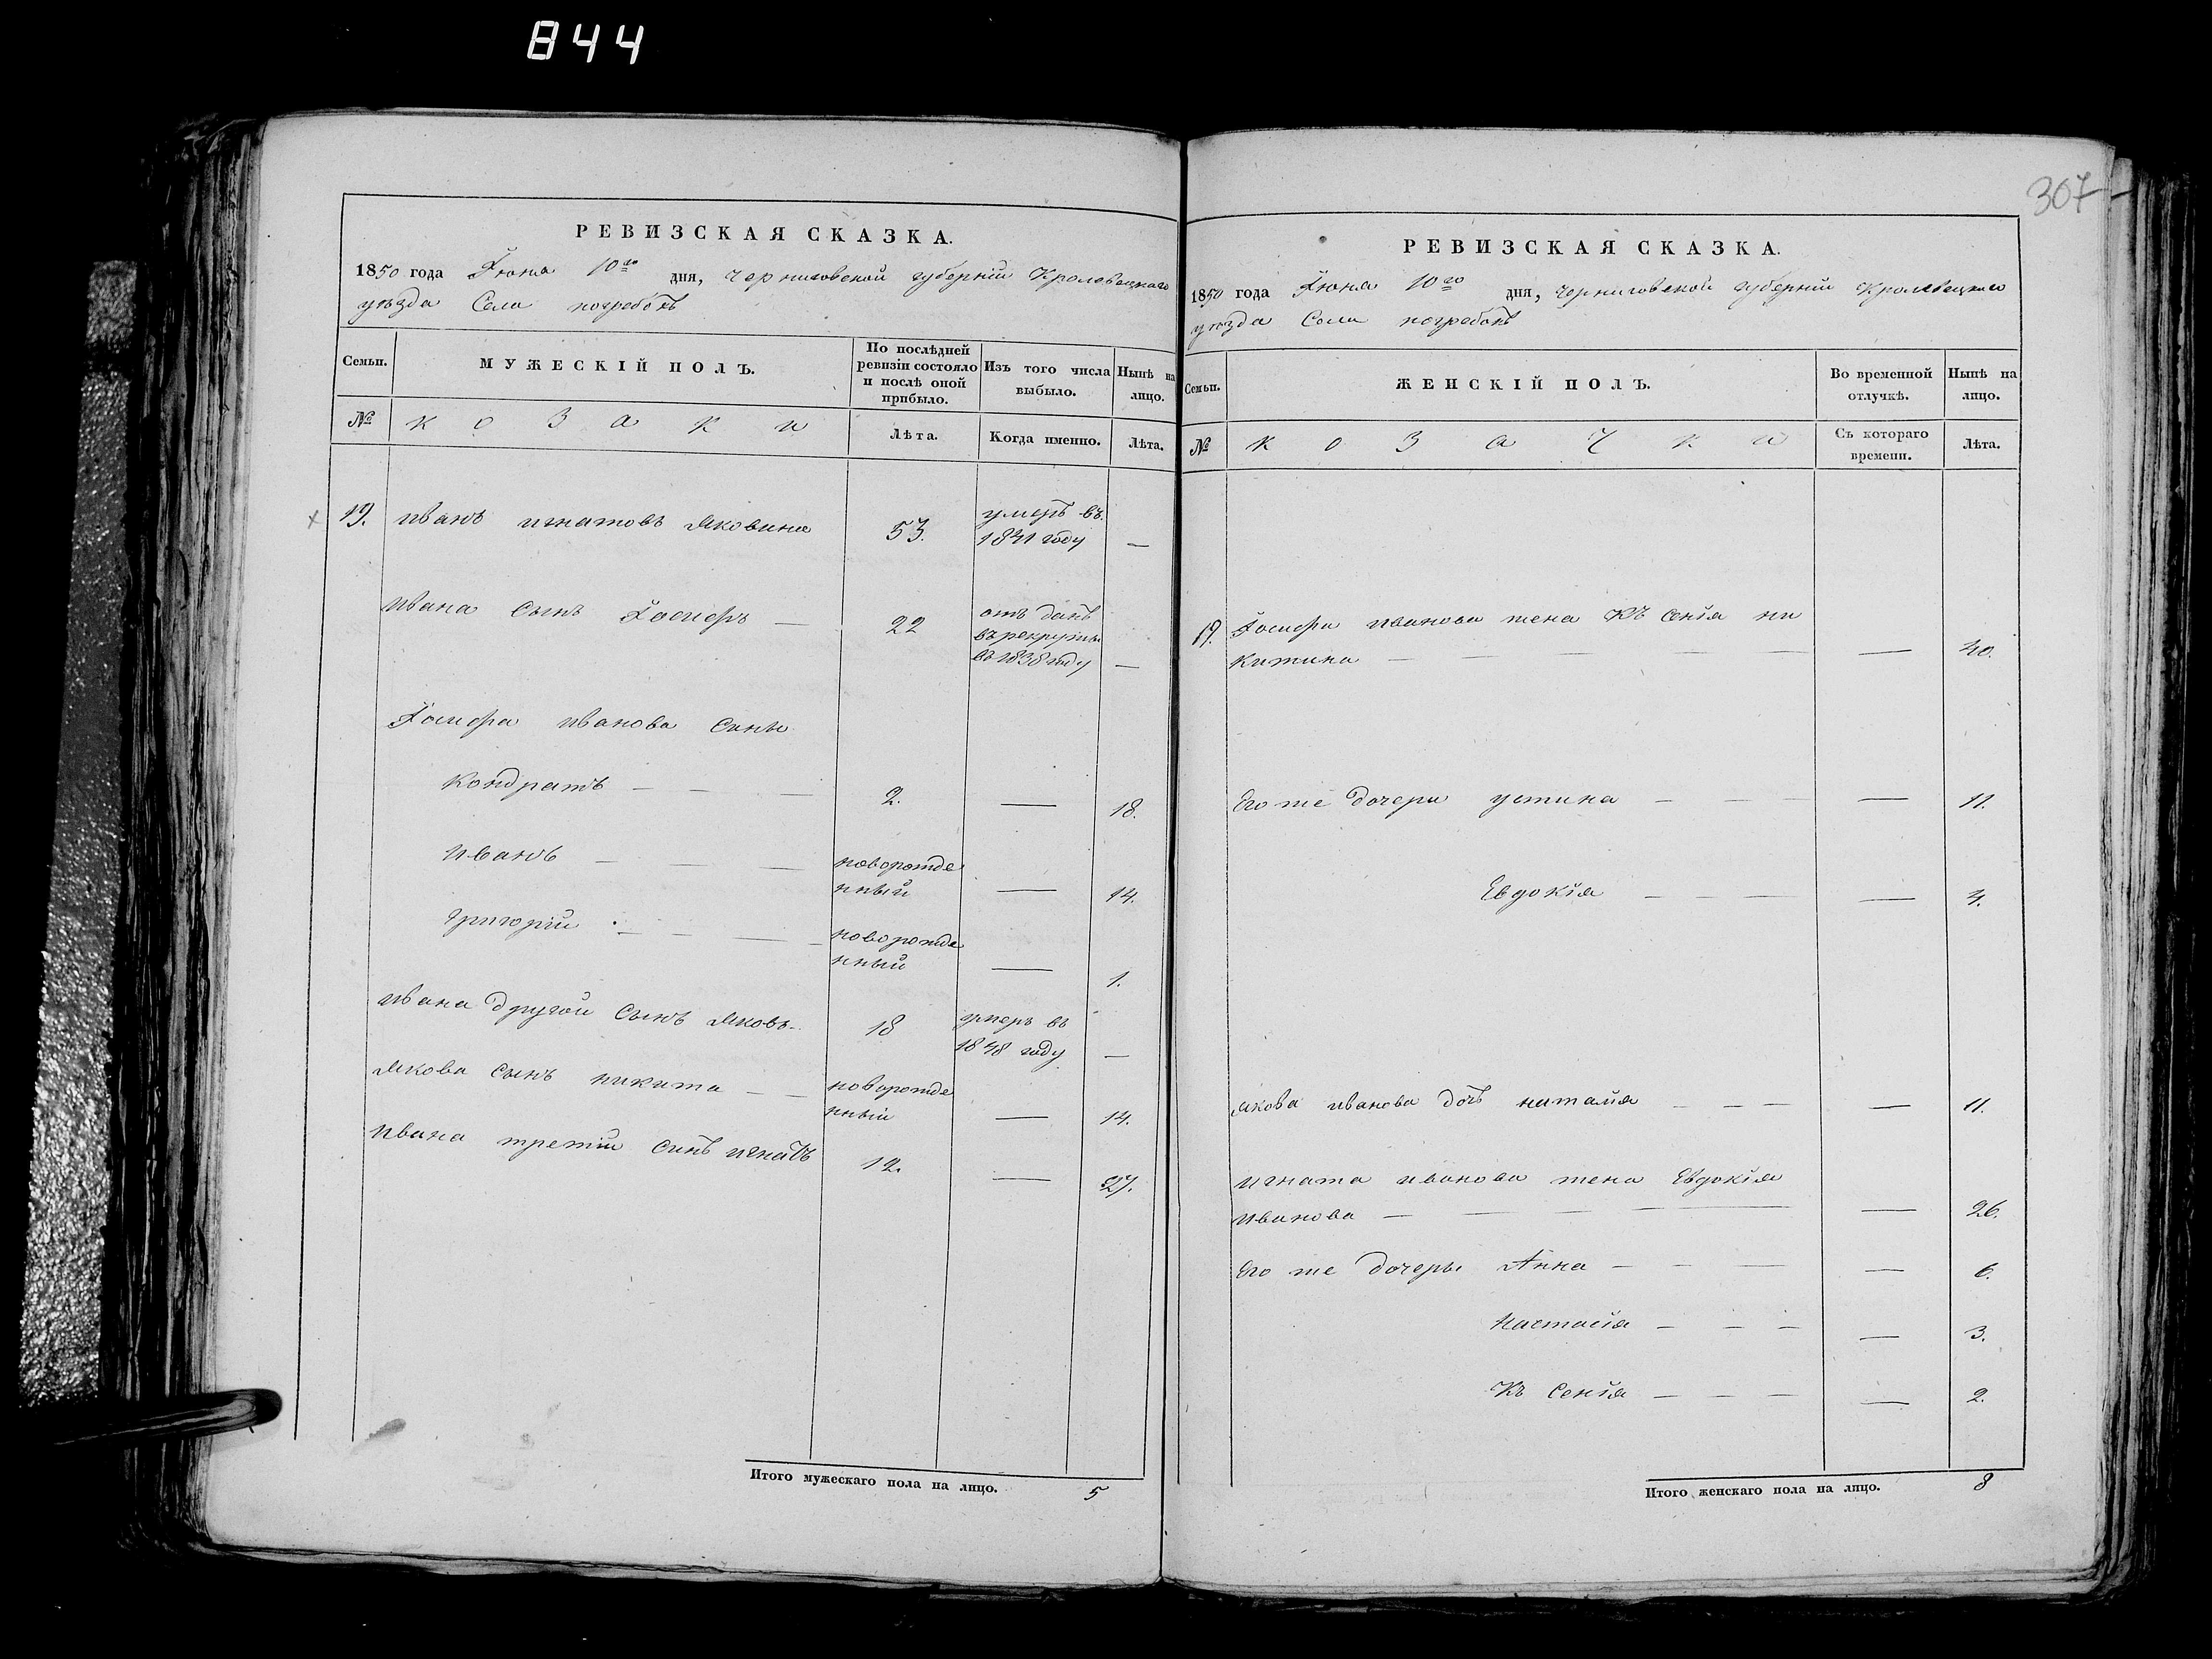 844
307
РЕВИЗСКАЯ СКАЗКА.
1850 года Іюня 10го дня, Черниговской губерніи Кролевецкаго
уѣзда Села погребокъ
Семьи. МУЖЕСКІЙ ПОЛЪ. По послѣдней ревизіи состояло и послѣ оной прибыло. Изъ того числа выбыло. Нынѣ на лицо.
№ козаки Лѣта. Когда именно. Лѣта.
19. иванъ игнатовъ Яковина 53. умеръ въ 1841 году —
ивана Сынъ Іосифъ — 22 отъ данъ въ рекруты въ 1838 году —
Іосифа иванова Сыны
Кондратъ — — — 2. — 18.
иванъ — — — новорожде нный — 14.
Григорій — — — новорожде нный — 1.
ивана другой Сынъ Яковъ — 18 умеръ въ 1848 году —
Якова Сынъ никита — — новорожде нный — 14.
ивана третій Сынъ игнатъ 12. — 27.
Итого мужескаго пола на лицо. 5
РЕВИЗСКАЯ СКАЗКА.
1850 года Іюня 10го дня, Черниговской губерніи Кролевецкаго
уѣзда Села погребокъ
Семьи. ЖЕНСКІЙ ПОЛЪ. Во временной отлучкѣ. Нынѣ на лицо.
№ козачки Съ котораго времени. Лѣта.
19. Іосифа иванова жена Къ Сенія ни
китина — — — — — — 40.
Его же дочери устина — — — — 11.
Евдокія — — — — 4.
Якова иванова дочь наталія — — — — 11.
игната иванова жена Евдокія
иванова — — — — — 26.
Его же дочеры Анна — — — — 6.
настасія — — — — 3.
Къ Сенія — — — — 2.
Итого женскаго пола на лицо. 8